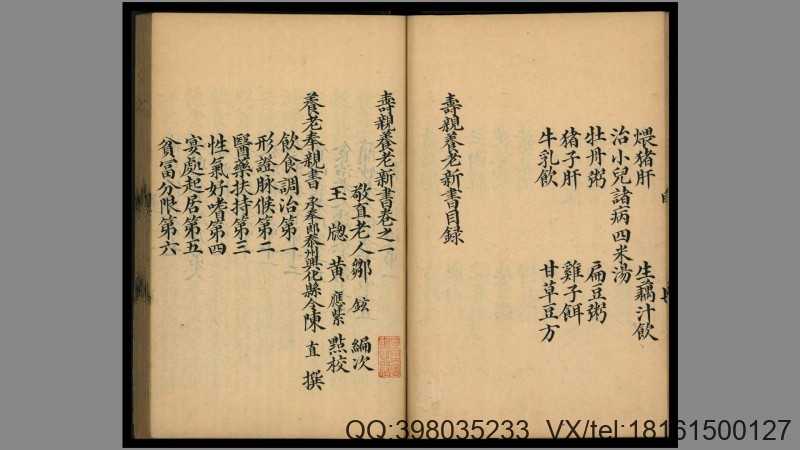 煨猪肝 生藕汁飲
治小兒諸病四米湯
牡丹粥 扁豆粥
猪子肝 雞子餌
牛乳飲 甘草豆方
壽親養老新書目録
壽親養老新書卷之一
敬直老人鄒鉉編次
玉牕黄應紫點校
養老奉親書 承奉郎泰州興化縣令陳直撰
飲食調治第一
形證脉候第二
醫藥扶持第三
性氣好嗜第四
宴處起居第五
貧冨分限第六
QQ:398035233 VX/tel:18161500127